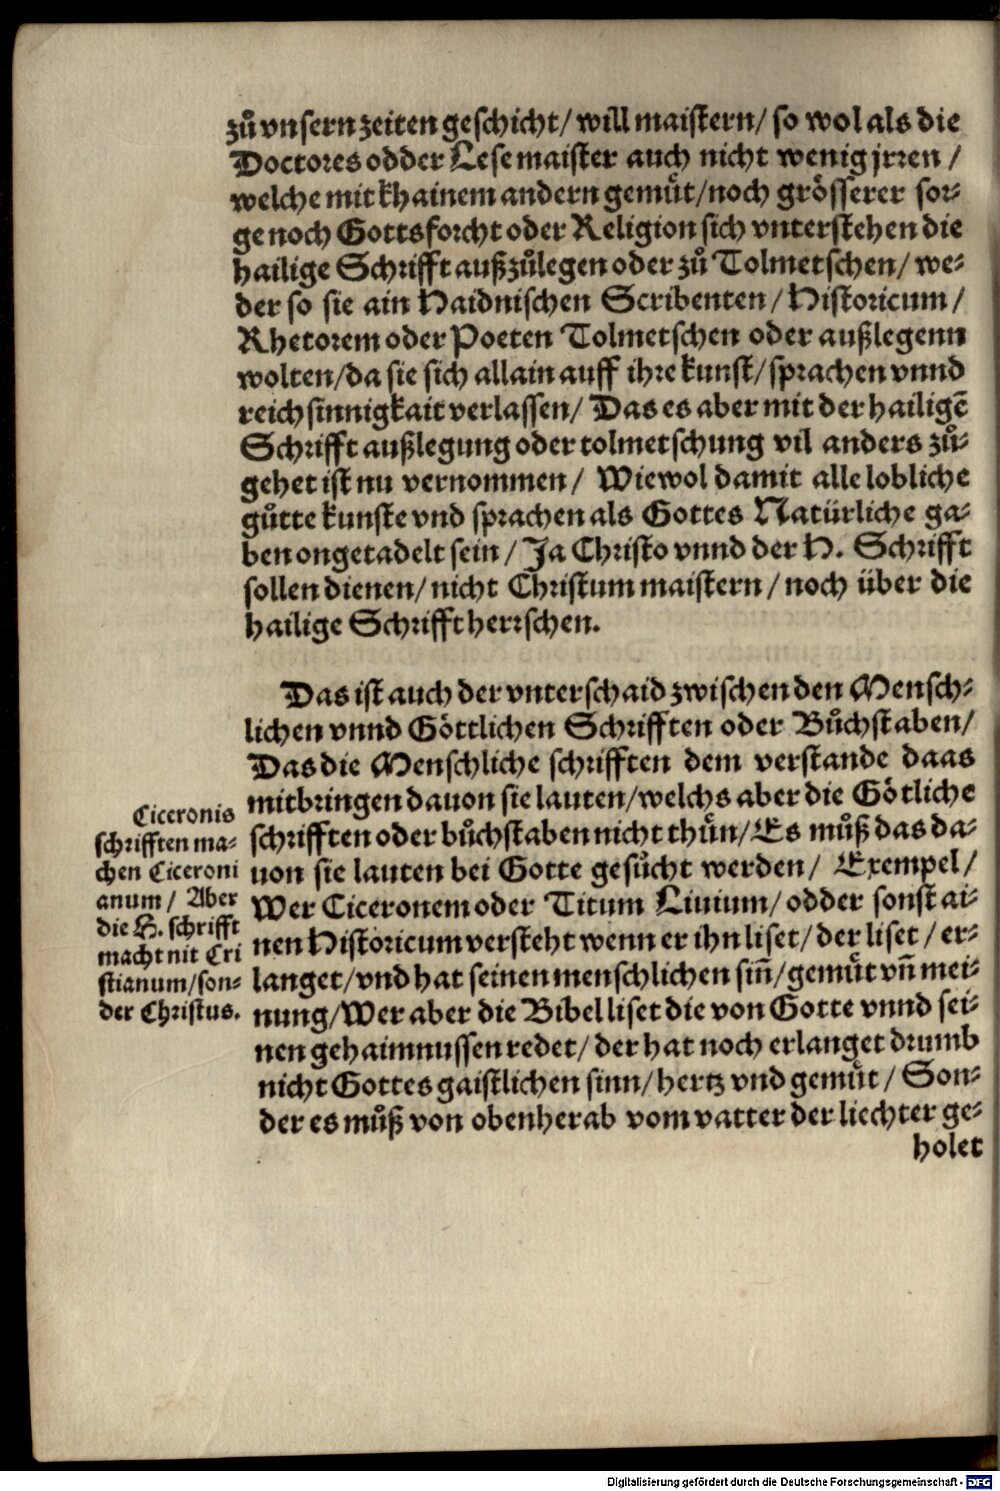 zuͦ vnsern zeiten geschicht/ will maistern/ so wol als die
Doctores odder Lese maister auch nicht wenig jrren /
welche mit khainem andern gemuͤt/ noch grösserer sor⸗
ge noch Gottsforcht oder Religion sich vnterstehen die
hailige Schrifft außzuͦlegen oder zuͦ Tolmetschen/ we⸗
der so sie ain Haidnischen Scribenten/ Historicum/
Rhetorem oder Poeten Tolmetschen oder außlegenn
wolten/ da sie sich allain auff ihre kunst/ sprachen vnnd
reichsinnigkait verlassen/ Das es aber mit der hailigē
Schrifft außlegung oder tolmetschung vil anders zuͦ⸗
gehet ist nu vernommen/ Wiewol damit alle lobliche
guͦtte kunste vnd sprachen als Gottes Natürliche ga⸗
ben ongetadelt sein/ Ja Christo vnnd der H. Schrifft
sollen dienen/ nicht Christum maistern/ noch über die
hailige Schrifft herrschen.
Das ist auch der vnterschaid zwischen den Mensch⸗
lichen vnnd Göttlichen Schrifften oder Buͦchstaben/
Das die Menschliche schrifften dem verstande daas
mitbringen dauon sie lauten/ welchs aber die Götliche
schrifften oder buͦchstaben nicht thuͦn/ Es muͦß das da⸗
uon sie lauten bei Gotte gesuͦcht werden/ Exempel/
Wer Ciceronem oder Titum Liuium/ odder sonst ai⸗
nen Historicum versteht wenn er ihn liset/ der liset / er⸗
langet/ vnd hat seinen menschlichen sin̄/ gemuͤt vn̄ mei⸗
nung/ Wer aber die Bibel liset die von Gotte vnnd sei⸗
nen gehaimnussen redet/ der hat noch erlanget drumb
nicht Gottes gaistlichen sinn/ hertz vnd gemuͤt/ Son⸗
der es muͦß von obenherab vom vatter der liechter ge⸗
holet
Ciceronis
schrifften ma⸗
chen Ciceroni
anum/ Aber
die H. schrifft
macht nit Cri
stianum/ son⸗
der Christus.
Digitalisierung gefördert durch die Deutsche Forschungsgemeinschaft - DFG